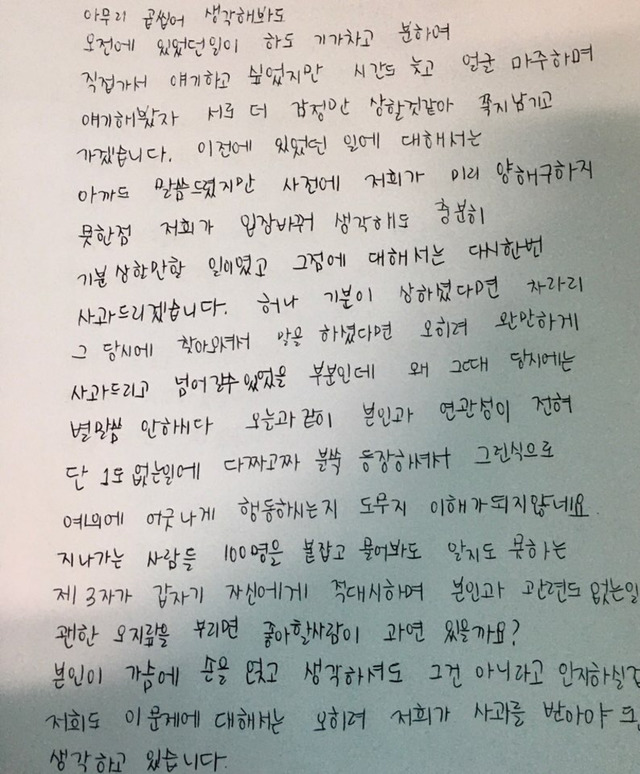 아무리 곱씹어 생각해봐도
오전에 있었던일이 하도 기가차고 분하여
직접가서 얘기하고 싶었지만 시간도 늦고 얼굴 마주하며
얘기해봤자 서로 더 감정만 상할것같아 쪽지남기고
가겠습니다. 이전에 있었던 일에 대해서는
아까도 말씀드렸지만 사전에 저희가 미리 양해구하지
못한점 저희가 입장바꿔 생각해도 충분히
기분상할만할 일이였고 그점에 대해서는 다시한번
사과드리겠습니다. 허나 기분이 상하셨다면 차라리
그 당시에 찾아와셔서 말을 하셨다면 오히려 완만하게
사과드리고 넘어갈수있었을 부분인데 왜 그때 당시에는
별말씀 안하시다 오늘과같이 본인과 연관성이 전혀
단 1도 없는일에 다짜고짜 불쑥 등장하셔서 그런식으로
예의에 어긋나게 행동하시는지 도무지 이해가되지않네요.
지나가는 사람들 100명을 붙잡고 물어봐도 알지도 못하는
제 3자가 갑자기 자신에게 적대시하며 본인과 관련도 없는일
괜한 오지랖을 부리면 좋아할사람이 과연 있을까요?
본인이 가슴에 손을 얹고 생각하셔도 그건 아니라고 인지하실
저희도 이 문제에 대해서는 오히려 저희가 사과를 받아야
생각하고 있습니다.